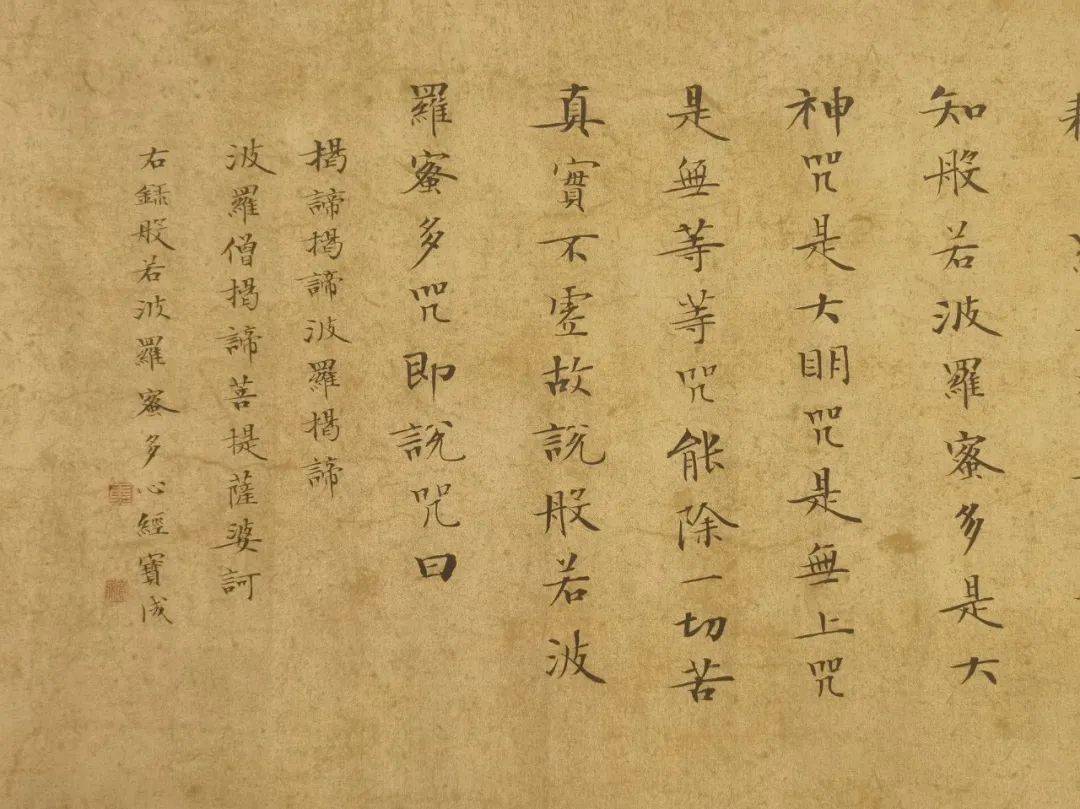 知般若波羅蜜多是大
神咒是大明咒是無上咒
是無等等咒能除一切苦
真實不虛故說般若波
羅蜜多咒即說咒曰
揭諦揭諦波羅揭諦
波羅僧揭諦菩提薩婆訶
右錄般若波羅蜜多心經寶成